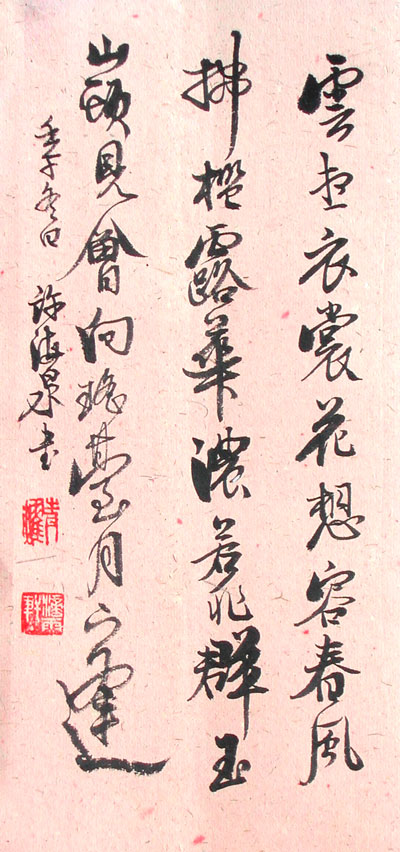 雲想衣裳花想容春風
拂檻露華濃若非群玉
山頭見會向瑤臺月下逢
壬午冬日 許海泉書